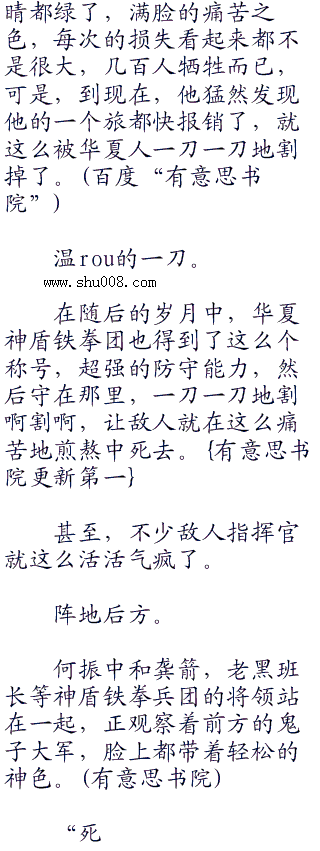 睛都绿了，满脸的痛苦之
色，每次的损失看起来都不
是很大，几百人牺牲而已，
可是，到现在，他猛然发现
他的一个旅都快报销了，就
这么被华夏人一刀一刀地割
掉了。(百度“有意思书
院”)
温rou的一刀。
www.shu008.com
在随后的岁月中，华夏
神盾铁拳团也得到了这么个
称号，超强的防守能力，然
后守在那里，一刀一刀地割
啊割啊，让敌人就在这么痛
苦地煎熬中死去。{有意思书
院更新第一}
甚至，不少敌人指挥官
就这么活活气疯了。
阵地后方。
何振中和龚箭，老黑班
长等神盾铁拳兵团的将领站
在一起，正观察着前方的鬼
子大军，脸上都带着轻松的
神色。(有意思书院)
“死